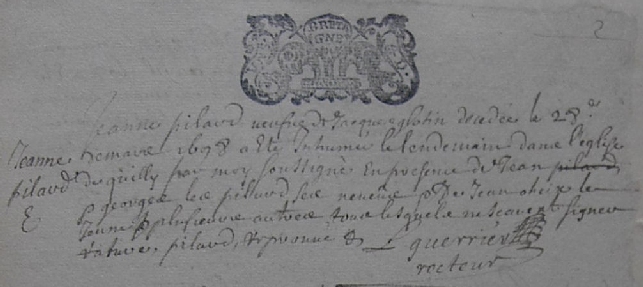 2
BRETAGNE
Jeanne pilard veufve de Jacque globin decedée le 28e
Jeanne de mars 1698 a été Inhumée le lendemain dans l'eglise
pilard de quilly par moy soussigné En presence de Jean pilard
E georges les pilard ses neveux & de Jean le
Jeune & plusieurs autres tous lesquels ne scavent signer
rature pilard, Guerrier
recteur